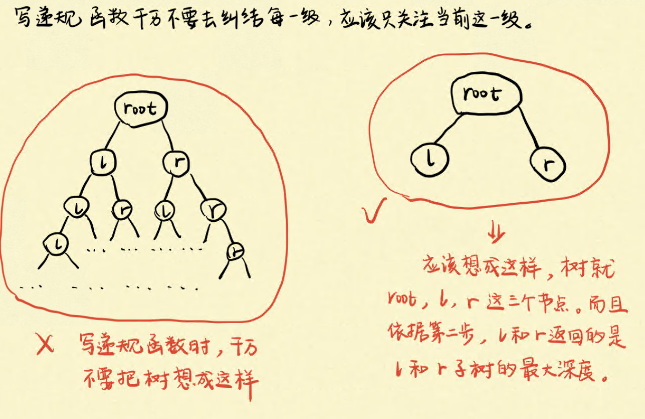 写递归函数千万不要去纠结每一级，应该只关注当前这一级。
root
l r
l r l r
l r
X 写递归函数时，千万
不要把树想成这样
root
l r
✓
⇓
应该想成这样，树就
root，l，r 这三个节点。而且
依据第二步，l和r返回的是
l和r子树的最大深度。